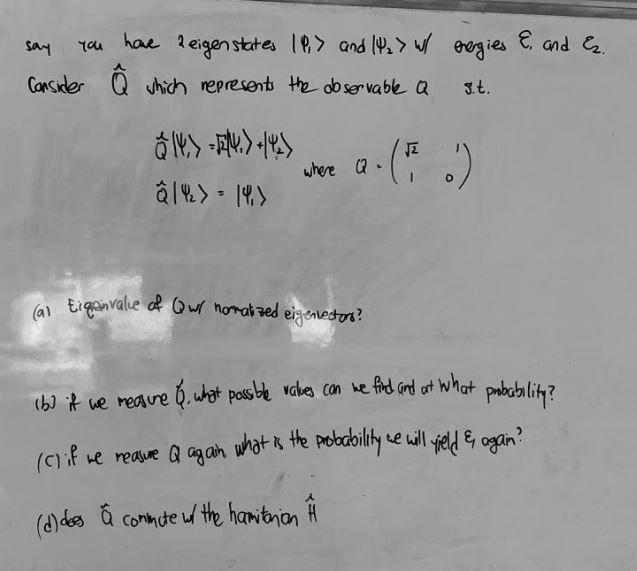 say you have 2 eigenstates |Ψ₁> and |Ψ₂> w/ energies ε₁ and ε₂.
Consider Q̂ which represents the observable Q s.t.
Q̂|Ψ₁> = √2|Ψ₁> + |Ψ₂>
where Q = (√2 1
1 0)
Q̂|Ψ₂> = |Ψ₁>
(a) Eigenvalue of Q w/ normalized eigenvectors?
(b) if we measure Q̂, what possible values can we find and at what probability?
(c) if we measure Q again what is the probability we will yield ε₁ again?
(d) does Q̂ commute w/ the hamitonian Ĥ